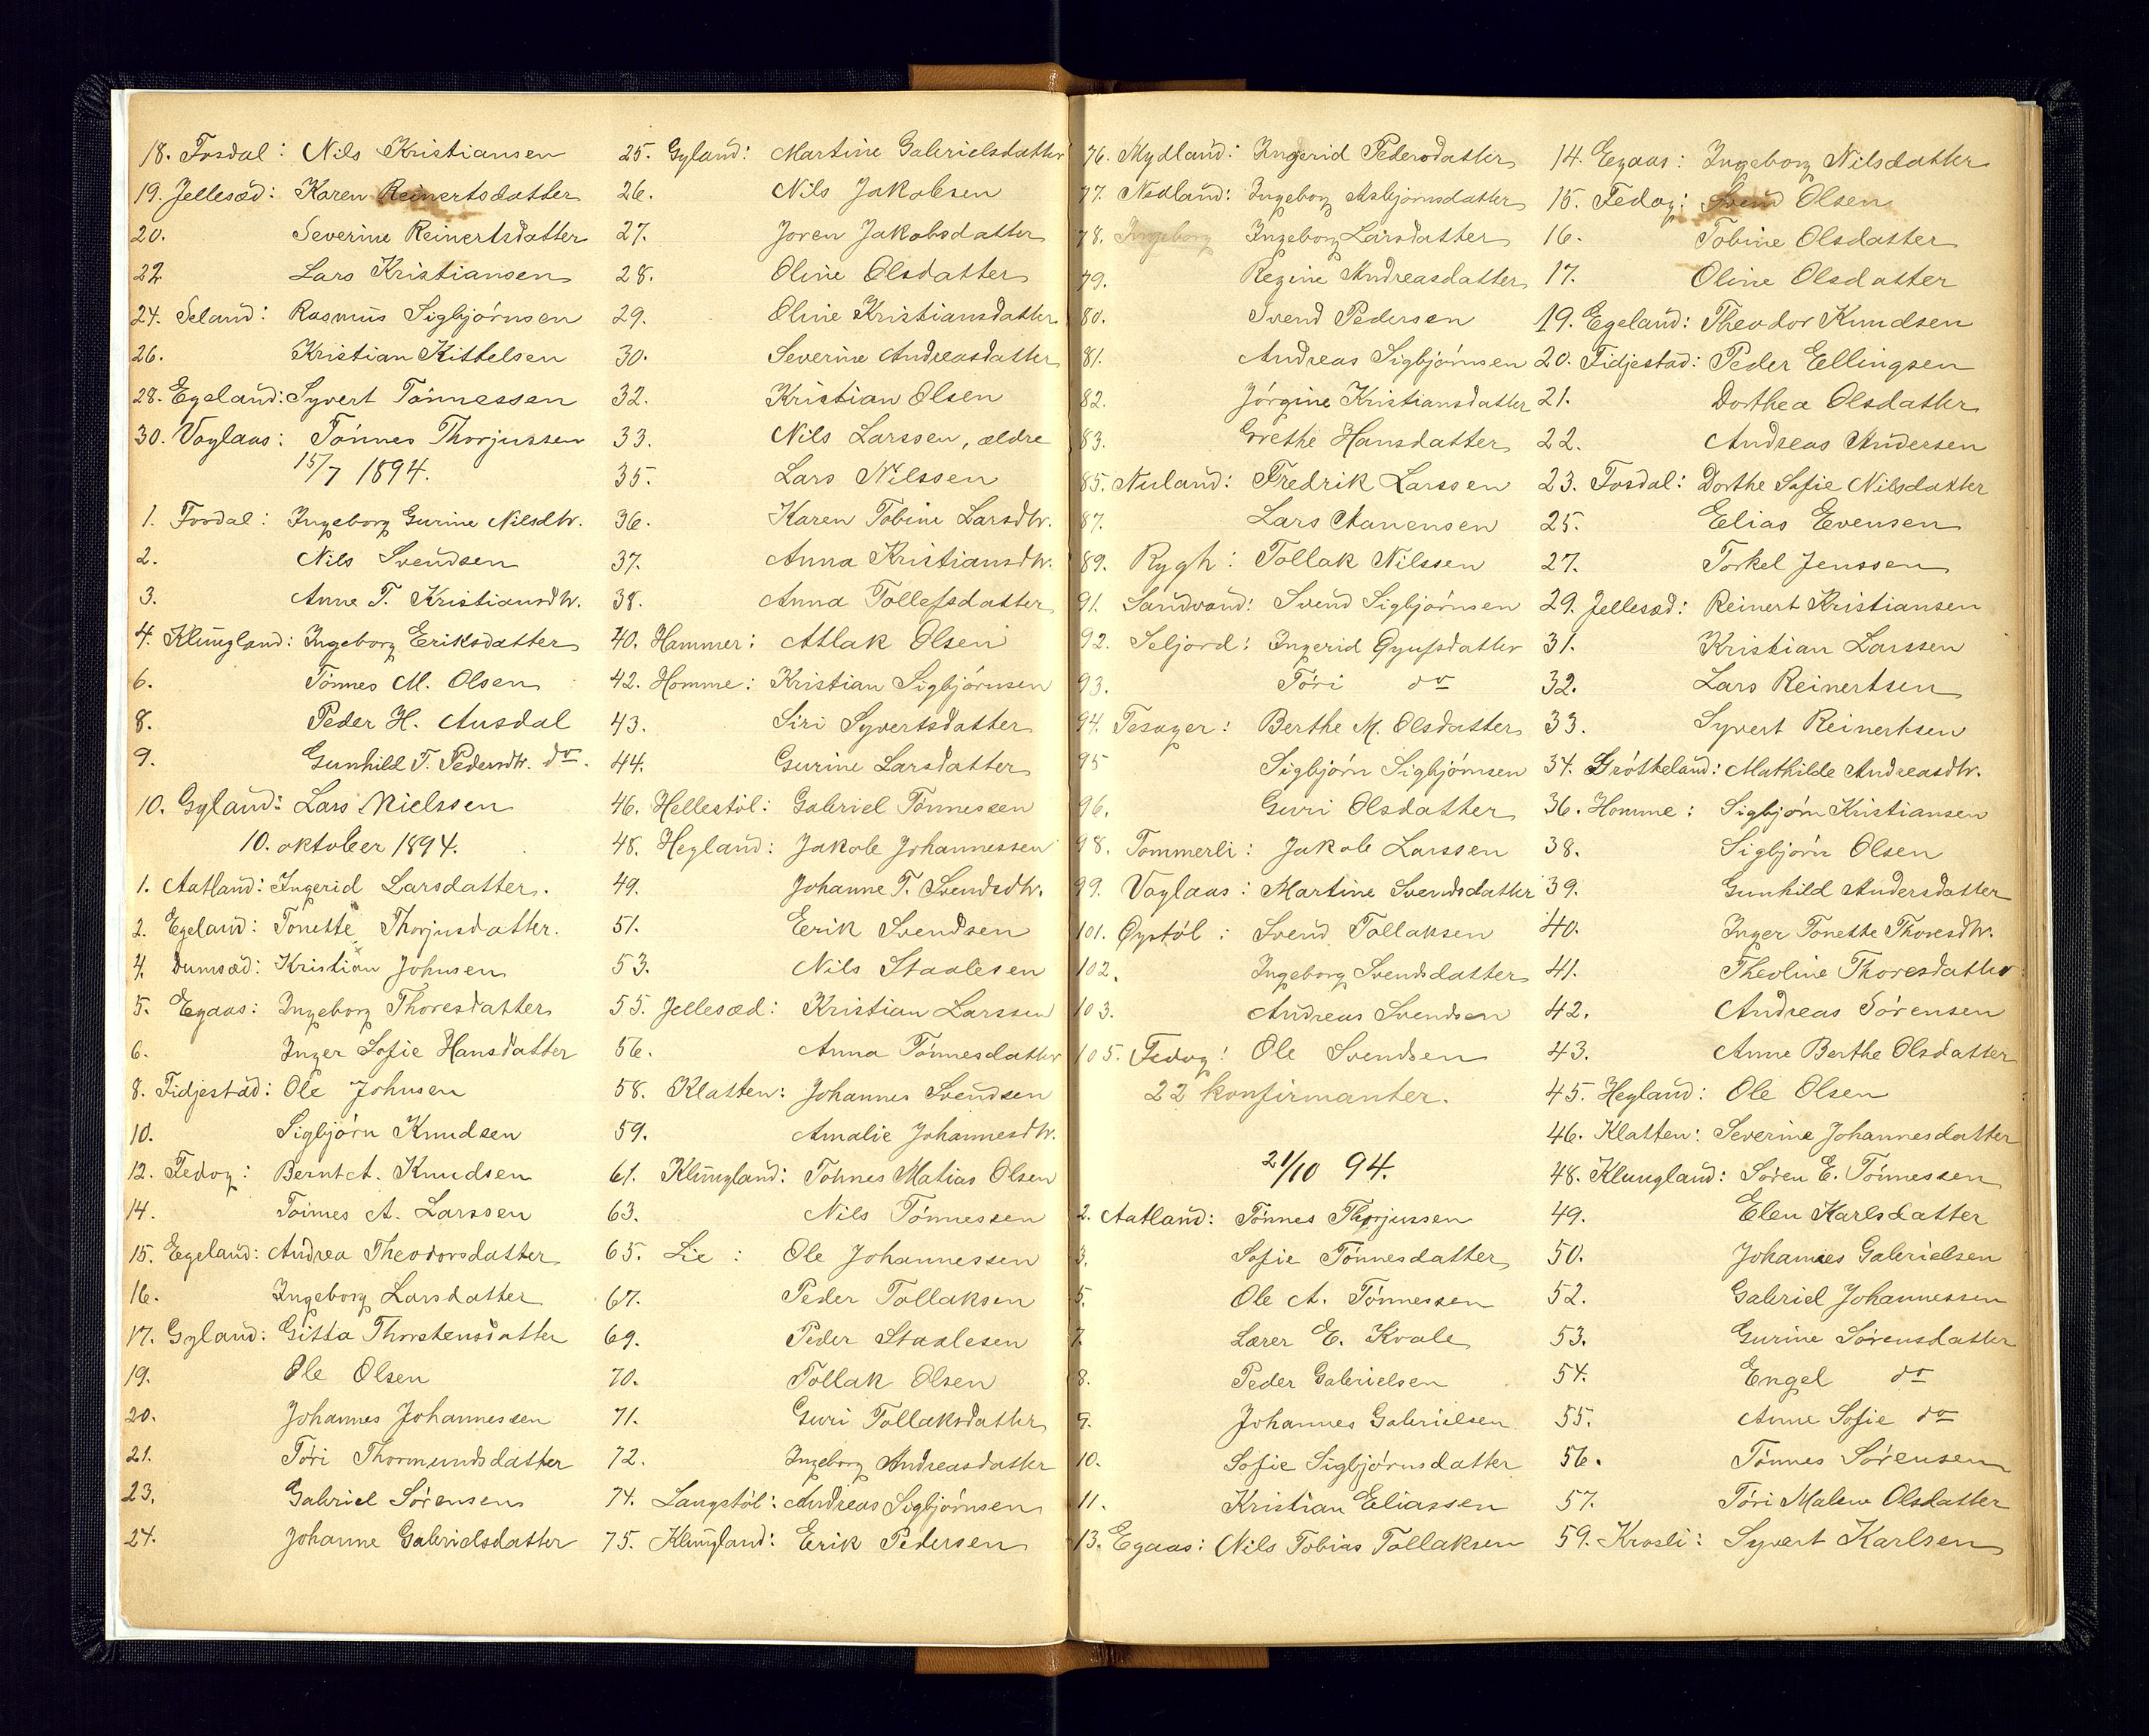 18. Fosdal: Nils Kristiansen
19. Jellesæd: Karen Reinertsdatter
20. Severine Reinertsdatter
22 Lars Kristiansen
24. Seland: Rasmus Sigbjørnsen
26. Kristian Kittelsen
28. Egeland: Syvert Tønnessen
30. Voglaas: Tønnes Thorjussen
15/7 1894.
1. Fosdal: Ingeborg Gurine Nilsdtr.
2. Nils Svendsen
3. Anne T. Kristiansdtr.
4. Klungland: Ingeborg Eriksdatter
6. Tønnes M. Olsen
8. Peder H. Ausdal
9. Gunhild T. Pedersdtr. do.
10. Gyland: Lars Nielssen
10. oktober 1894.
1. Aatland: Ingerid Larsdatter.
2. Egeland: Tonette Thorjusdatter.
4. Dumsæd: Kristian Johnsen
5. Egaas: Ingeborg Thoresdatter
6. Inger Sofie Hansdatter
8. Fidjestad: Ole Johnsen
10. Sigbjørn Knudsen
12. Fedog: Bernt A. Knudsen
14. Tønnes A. Larssen
15. Egeland: Andrea Theodorsdatter
16. Ingeborg Larsdatter
17. Gyland: Gitta Thorstensdatter
19. Ole Olsen
20. Johannes Johannessen
21. Tøri Thormundsdatter
23. Gabriel Sørensen
24. Johanne Gabrielsdatter
25. Gyland: Martine Gabrielsdatter
26. Nils Jakobsen
27. Joren Jakobsdatter
28. Oline Olsdatter
29. Oline Kristiansdatter
30. Severine Andreasdatter
32. Kristian Olsen
33. Nils Larssen, ældre
35. Lars Nilssen
36. Karen Tobine Larsdtr.
37. Anna Kristiansdtr.
38. Anna Tollefsdatter
40. Hammer: Atlak Olsen
42. Homme: Kristian Sigbjørnsen
43. Siri Syvertsdatter
44. Gurine Larsdatter
46. Hellestøl: Gabriel Tønnessen
48. Hegland: Jakob Johannessen
49. Johanne T. Svendsdtr.
51. Eerik Svendsen
53. Nils Staalesen
55. Jellesæd: Kristian Larssen
56. Anna Tønnesdatter
58. Klatten: Johannes Svendsen
59. Amalie Johannesdtr.
61. Klungland: Tønnes Matias Olsen
63. Nils Tønnessen
65. Lie: Ole Johannessen
67. Peder Tollaksen
69. Peder Staalesen
70. Tollak Olsen
71. Guri Tollaksdatter
72. Ingeborg Andreasdatter
74. Langstøl: Andreas Sigbjørnsen
75. Klungland: Erik Pedersen
76. Mydland: Ingerid Pedersdatter
77. Nedland: Ingeborg Asbjørnsdatter
78. Ingeborg Ingeborg Larsdatter
79. Regine Andreasdatter
80. Svend Pedersen
81. Andreas Sigbjørnsen
82. Jørgine Kristiansdatter
83. Grethe Hansdatter
85. Nuland: Fredrik Larssen
87. Lars Aanensen
89. Rygh: Tollak Nilssen
91. Sandvand: Svend Sigbjørnsen
92. Seljord: Ingerid Gyufsdatter
93. Tøri do
94. Tesager: Berthe M. Olsdatter
95 Sigbjørn Sigbjørnsen
96. Guri Olsdatter
98. Tommerli: Jakob Larssen
99. Voglaas: Martine Svendsdatter
101. Øystøl: Svend Tollaksen
102. Ingeborg Svendsdatter
103. Andreas Svendsen
105. Fedog: Ole Svendsen
22 konfirmanter.
21/10 94.
2. Aatland: Tønnes Thorjussen
3. Sofie Tønnesdatter
5. Ole A. Tønnessen
7. Lærer E. Kvale
8. Peder Gabrielsen
9. Johannes Gabrielsen
10. Sofie Sigbjørnsdatter
11. Kristian Eeliassen
13. Egaas: Nils Tobias Tollaksen
14. Egaas: Ingeborg Nilsdatter
15. Fedog: Svend Olsen
16. Tobine Olsdatter
17. Oline Olsdatter
19. Egeland: Theodor Knudsen
20. Fidjestad: Peder Eellingsen
21. Dorthea Olsdatter
22. Andreas Andersen
23. Fosdal: Dorthe Sofie Nilsdatter
25. Eelias Evensen
27. Torkel Jenssen
29. Jellesæd: Reinert Kristiansen
31. Kristian Larssen
32. Lars Reinertsen
33. Syvert Reinertsen
34. Grøtteland: Mathilde Andreasdtr.
36. Homme: Sigbjørn Kristiansen
38. Sigbjørn Olsen
39. Gunhild Andersdatter
40. Inger Tonette Thoresdtr.
41. Theoline Thoresdatter
42. Andreas Sørensen
43. Anne Berthe Olsdatter
45. Hegland: Ole Olsen
46. Klatten: Severine Johannesdatter
48. Klungland: Søren E. Tønnessen
49. Elen Karlsdatter
50. Johannes Gabrielsen
52. Gabriel Johannessen
53. Gurine Sørensdatter
54. Engel do
55. Anne Sofie do
56. Tønnes Sørensen
57. Tøri Malene Olsdatter
59. Krosli: Syvert Karlsen